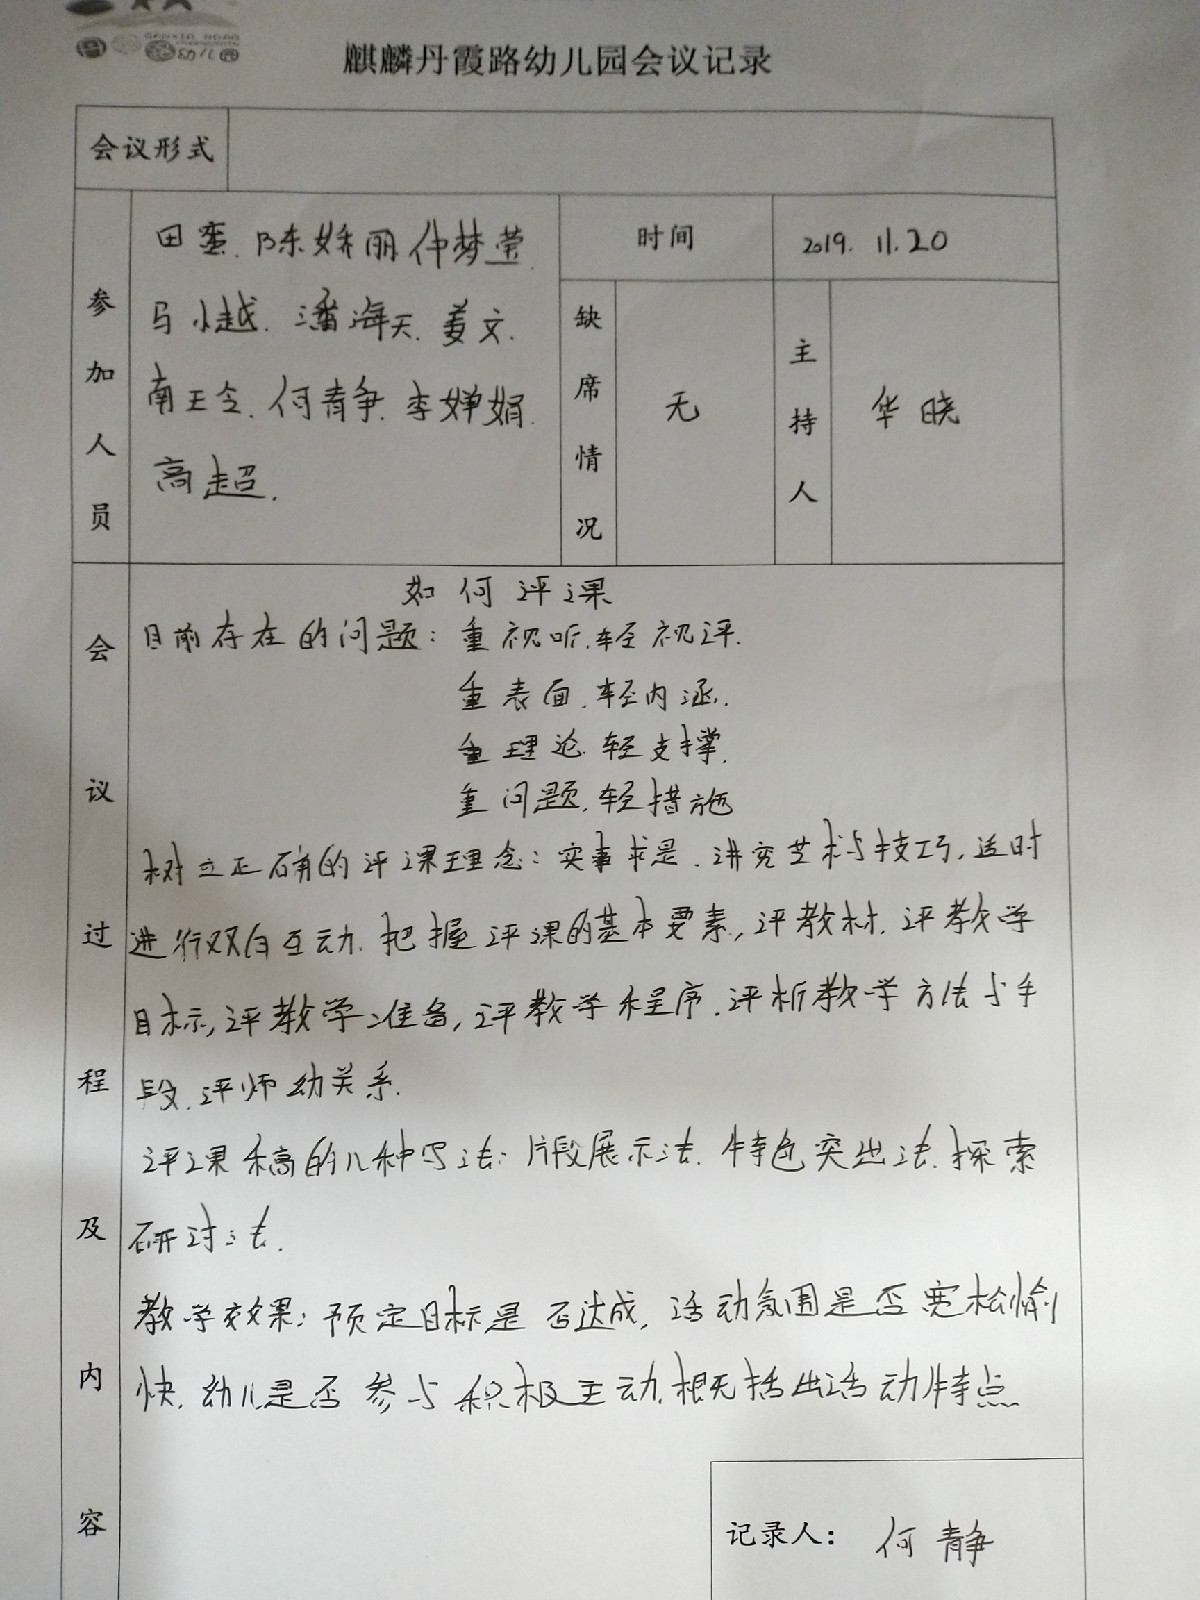 DANXIA ROAD
幼儿园
麒麟丹霞路幼儿园会议记录
会议形式
参加人员
田蛮. 陈娇丽 仲梦莹.
马小越. 潘海天. 姜文.
南王令. 何青争. 李婵娟.
高超.
时间
2019. 11.20
缺席情况
无
主持人
华晓
会议过程及内容
如何评课
目前存在的问题: 重视听.轻视评.
重表面.轻内涵.
重理论.轻支撑.
重问题.轻措施
树立正确的评课理念: 实事求是. 讲究艺术与技巧, 适时
进行双向互动. 把握评课的基本要素, 评教材. 评教学
目标, 评教学准备, 评教学程序. 评析教学方法与手
段. 评师幼关系.
评课稿的几种写法: 片段展示法. 特色突出法. 探索
研讨法.
教学效果: 预定目标是否达成, 活动氛围是否宽松愉
快. 幼儿是否参与积极主动. 概括出活动特点
记录人: 何静